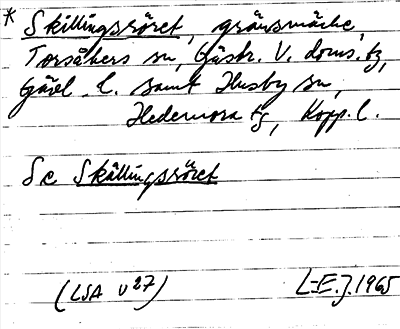 * Skillingsröret, gränsmärke,
Torsåkers sn, Gästr. V. doms. tg,
Gävl. l. samt Husby sn,
Hedemora tg, Kopp. l.
Se Skällingsröret
(LSA U 27) L-E.J. 1965